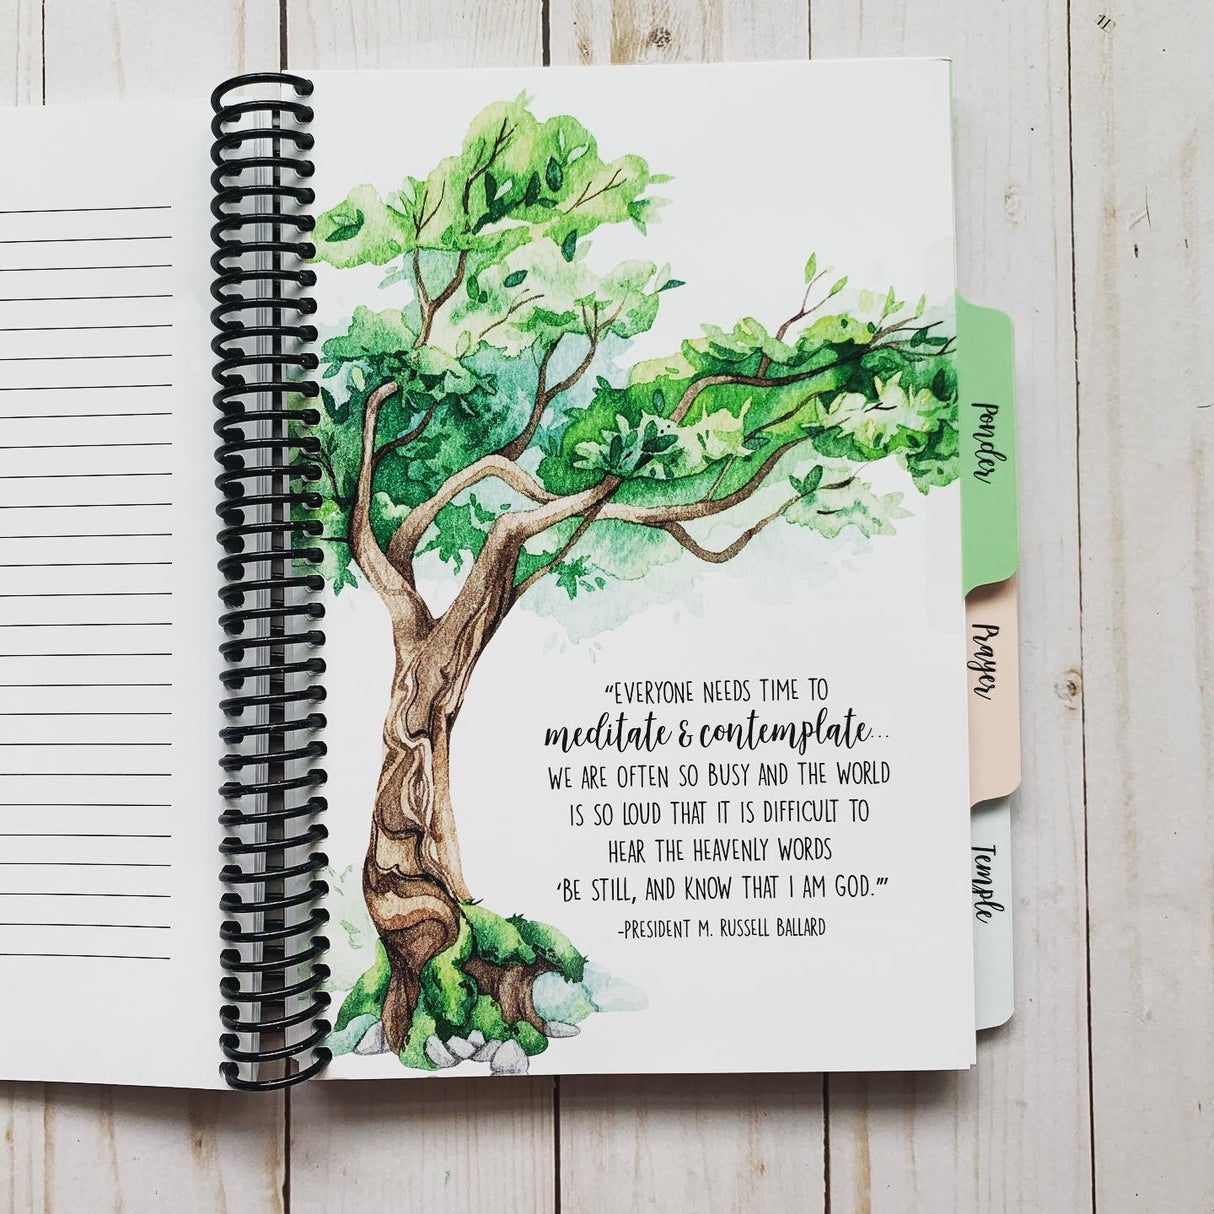 “EVERYONE NEEDS TIME TO
meditate & contemplate...
WE ARE OFTEN SO BUSY AND THE WORLD
IS SO LOUD THAT IT IS DIFFICULT TO
HEAR THE HEAVENLY WORDS
‘BE STILL, AND KNOW THAT I AM GOD.’”
-PRESIDENT M. RUSSELL BALLARD
Ponder
Prayer
Temple